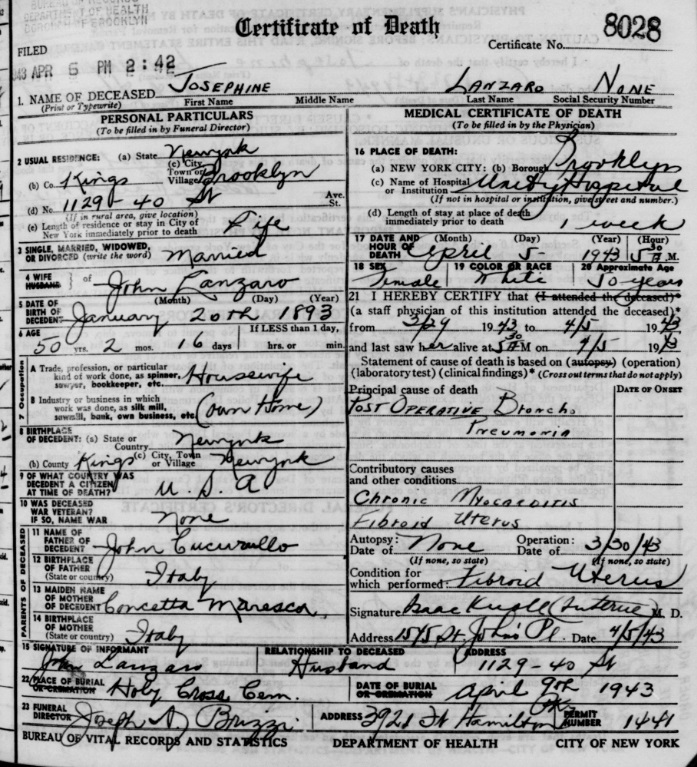 DEPARTMENT OF HEALTH
BROOKLYN
Certificate of Death
8028
Certificate No.
FILED
1943 APR 6 PM 2:42
Josephine Lanzaro None
1. NAME OF DECEASED First Name Middle Name Last Name Social Security Number
(Print or Typewrite)
PERSONAL PARTICULARS
(To be filled in by Funeral Director)
2 USUAL RESIDENCE: (a) State New York
(b) Co. Kings (c) City, Town or Village Brooklyn
(d) No. 1129-40 St Ave. St.
(If in rural area, give location)
(e) Length of residence or stay in City of New York immediately prior to death Life
3 SINGLE, MARRIED, WIDOWED, OR DIVORCED (write the word) Married
4 WIFE HUSBAND of John Lanzaro
5 DATE OF BIRTH OF DECEDENT (Month) (Day) (Year)
January 20th 1893
6 AGE 50 yrs. 2 mos. 16 days If LESS than 1 day, hrs. or min.
7 Occupation
A Trade, profession, or particular kind of work done, as spinner, sawyer, bookkeeper, etc. Housewife
B Industry or business in which work was done, as silk mill, sawmill, bank, own business, etc. (Own Home)
8 BIRTHPLACE OF DECEDENT: (a) State or Country New York
(b) County Kings (c) City, Town or Village New York
9 OF WHAT COUNTRY WAS DECEDENT A CITIZEN AT TIME OF DEATH? U.S.A
10 WAS DECEASED WAR VETERAN? IF SO, NAME WAR None
PARENTS OF DECEASED
11 NAME OF FATHER OF DECEDENT John Cucurullo
12 BIRTHPLACE OF FATHER (State or country) Italy
13 MAIDEN NAME OF MOTHER OF DECEDENT Concetta Maresca
14 BIRTHPLACE OF MOTHER (State or country) Italy
MEDICAL CERTIFICATE OF DEATH
(To be filled in by the Physician)
16 PLACE OF DEATH:
(a) NEW YORK CITY: (b) Borough Brooklyn
(c) Name of Hospital or Institution Unity Hospital
(If not in hospital or institution, give street and number.)
(d) Length of stay at place of death immediately prior to death 1 week
17 DATE AND HOUR OF DEATH (Month) (Day) (Year) (Hour)
April 5 1943 5 30 M.
18 SEX 19 COLOR OR RACE 20 Approximate Age
Female White 50 years
21 I HEREBY CERTIFY that (I attended the deceased)*
(a staff physician of this institution attended the deceased)*
from 3/29 1943 to 4/5 1943
and last saw her alive at 5 30 M on 4/5 1943
Statement of cause of death is based on (autopsy) (operation)
(laboratory test) (clinical findings)* (Cross out terms that do not apply)
Principal cause of death DATE OF ONSET
Post Operative Broncho
Pneumonia
Contributory causes and other conditions
Chronic Myocarditis
Fibroid Uterus
Autopsy: Date of None Operation: Date of 3/30/43
(If none, so state) (If none, so state)
Condition for which performed: Fibroid Uterus
Signature Isaac (Interne) M. D.
Address 1515 St. Johns Pl. Date 4/5/43
15 SIGNATURE OF INFORMANT RELATIONSHIP TO DECEASED ADDRESS
John Lanzaro Husband 1129-40 St
22 PLACE OF BURIAL OR CREMATION Holy Cross Cem. DATE OF BURIAL OR CREMATION April 9th 1943
23 FUNERAL DIRECTOR Joseph ADDRESS 3921 Ft Hamilton Pky PERMIT NUMBER 1441
BUREAU OF VITAL RECORDS AND STATISTICS DEPARTMENT OF HEALTH CITY OF NEW YORK